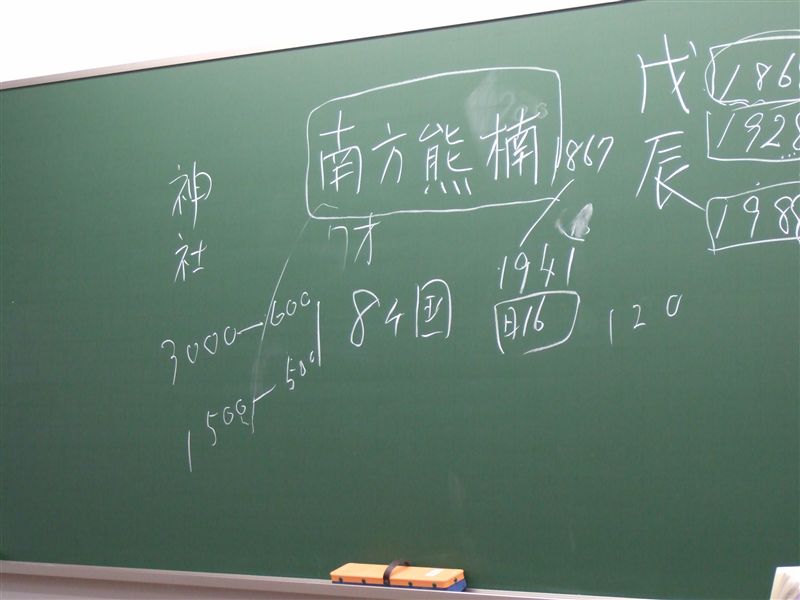 神社
3000—600
1500—500
南方熊楠
1867
1941
7才
8ケ国
日16
120
戊辰
1868
1928
1988